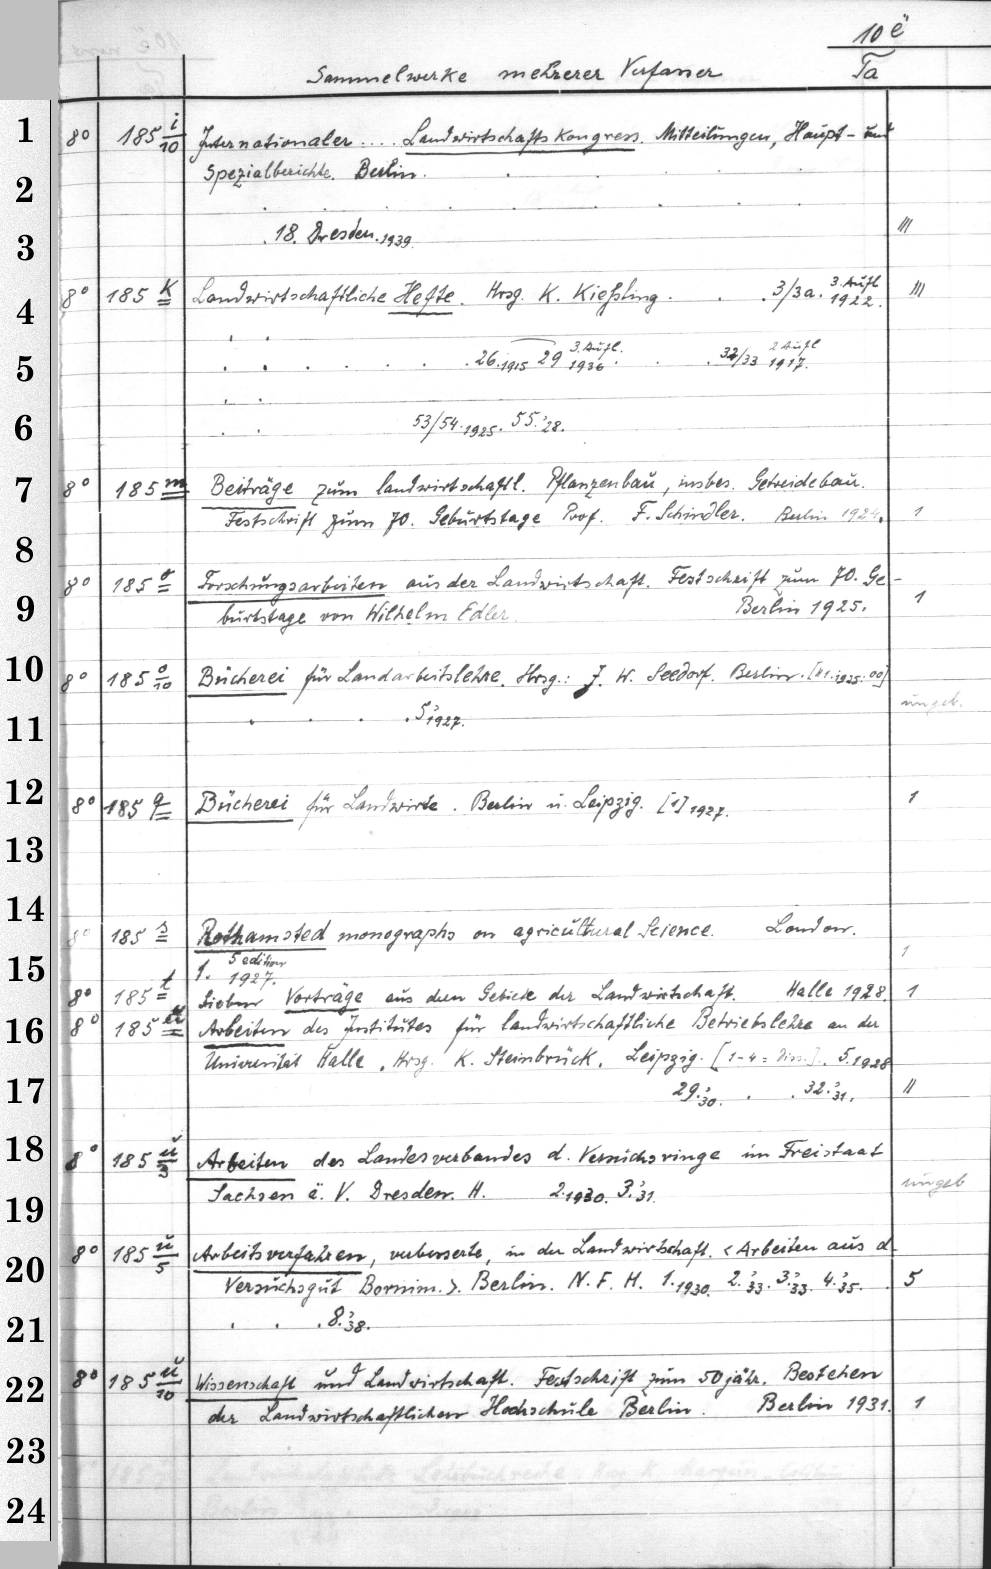 10 ë
Sammelwerke mehrerer Verfasser Ta
1
8° 185 i/10 Internationaler .... Landwirtschaftskongress. Mitteilungen, Haupt- und
2 Spezialberichte. Berlin.
3 . 18. Dresden. 1939. III
4 8° 185 k Landwirtschaftliche Hefte. Hrsg. K. Kießling . . . 3/3a. 3. Aufl 1922. III
5 . . . . . . . 26. 1915 29 3. Aufl. 1936 . . . 32/33 2 Aufl 1917.
6 . . 53/54. 1925. 55. '28.
7 8° 185 m Beiträge zum landwirtschaftl. Pflanzenbau, insbes. Getreidebau.
Festschrift zum 70. Geburtstage Prof. F. Schindler. Berlin 1924. 1
8
8° 185 o Forschungsarbeiten aus der Landwirtschaft. Festschrift zum 70. Ge-
9 burtstage von Wilhelm Edler. Berlin 1925. 1
10 8° 185 o/10 Bücherei für Landarbeitslehre. Hrsg.: J. W. Seedorf. Berlin. 1925.
ungeb.
11 . . . . 5. '1927.
12 8° 185 q Bücherei für Landwirte. Berlin u. Leipzig. [1] 1927. 1
13
14
8° 185 s Rothamsted monographs on agricultural Science. London.
15 1. 5 edition 1927. 1
8° 185 t Sieben Vorträge aus dem Gebiete der Landwirtschaft. Halle 1928. 1
16 8° 185 u Arbeiten des Institutes für landwirtschaftliche Betriebslehre an der
Universität Halle. Hrsg. K. Steinbrück. Leipzig. [1-4 = Diss.]. 5. 1928
17 29. '30. . . 32. '31. II
18 8° 185 ü/3 Arbeiten des Landesverbandes d. Versuchsringe im Freistaat
19 Sachsen e. V. Dresden. H. 2. 1930. 3. '31. ungeb
20 8° 185 ü/5 Arbeitsverfahren, verbesserte, in der Landwirtschaft. < Arbeiten aus d.
Versuchsgut Bornim. >. Berlin. N. F. H. 1. 1930. 2. '33. 3. '33. 4. '35. . 5
21 . . . 8. '38.
22 8° 185 ü/10 Wissenschaft und Landwirtschaft. Festschrift zum 50 jähr. Bestehen
der Landwirtschaftlichen Hochschule Berlin. Berlin 1931. 1
23
24